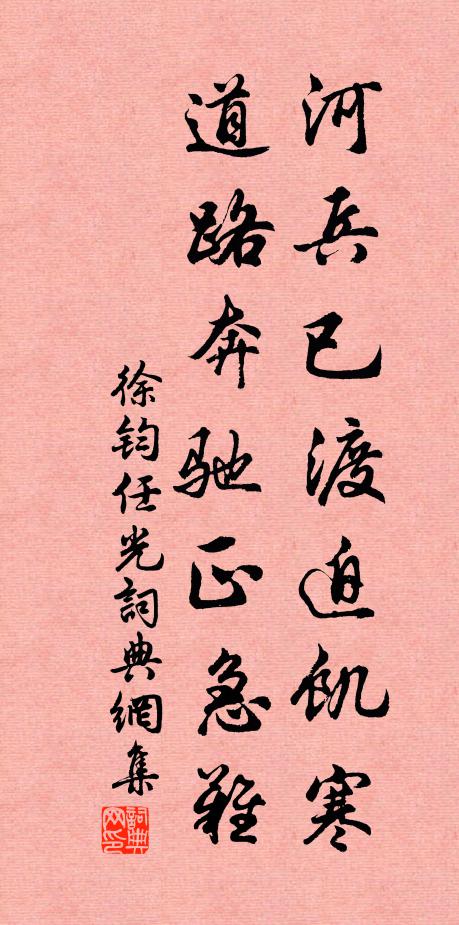 河兵已渡迫飢寒
道路奔馳正急難
徐鈞任光詞典網集
詞典
网印